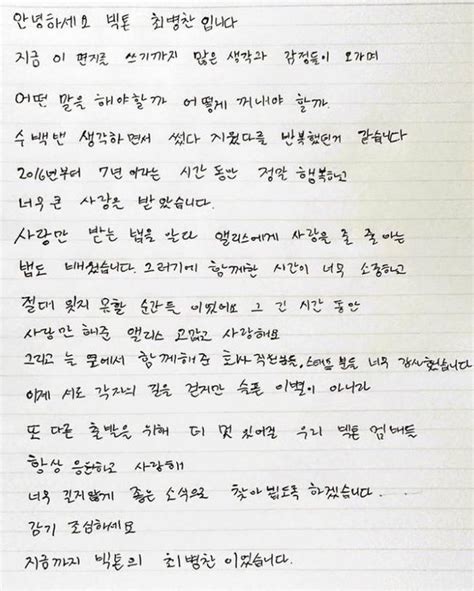 안녕하세요 빅톤 최병찬입니다
지금 이 편지를 쓰기까지 많은 생각과 감정들이 오가며
어떤 말을 해야할까 어떻게 꺼내야 할까.
수백번 생각하면서 썼다 지웠다를 반복했던거 같습니다
2016년부터 7년 이라는 시간 동안 정말 행복하고
너무 큰 사랑을 받았습니다.
사랑만 받는 법을 알다 앨리스에게 사랑을 줄 줄 아는
법도 배웠습니다. 그러기에 함께한 시간이 너무 소중하고
절대 잊지 못할 순간들 이었어요 그 긴 시간 동안
사랑만 해준 앨리스 고맙고 사랑해요
그리고 늘 옆에서 함께해준 회사 직원분들, 스태프 분들 너무 감사했습니다
이제 서로 각자의 길을 걷지만 슬픈 이별이 아니라
또 다른 출발을 위해 더 멋 있어질 우리 빅톤 멤버들
항상 응원하고 사랑해
너무 길지않게 좋은 소식으로 찾아 뵙도록 하겠습니다.
감기 조심하세요
지금까지 빅톤의 최병찬 이었습니다.